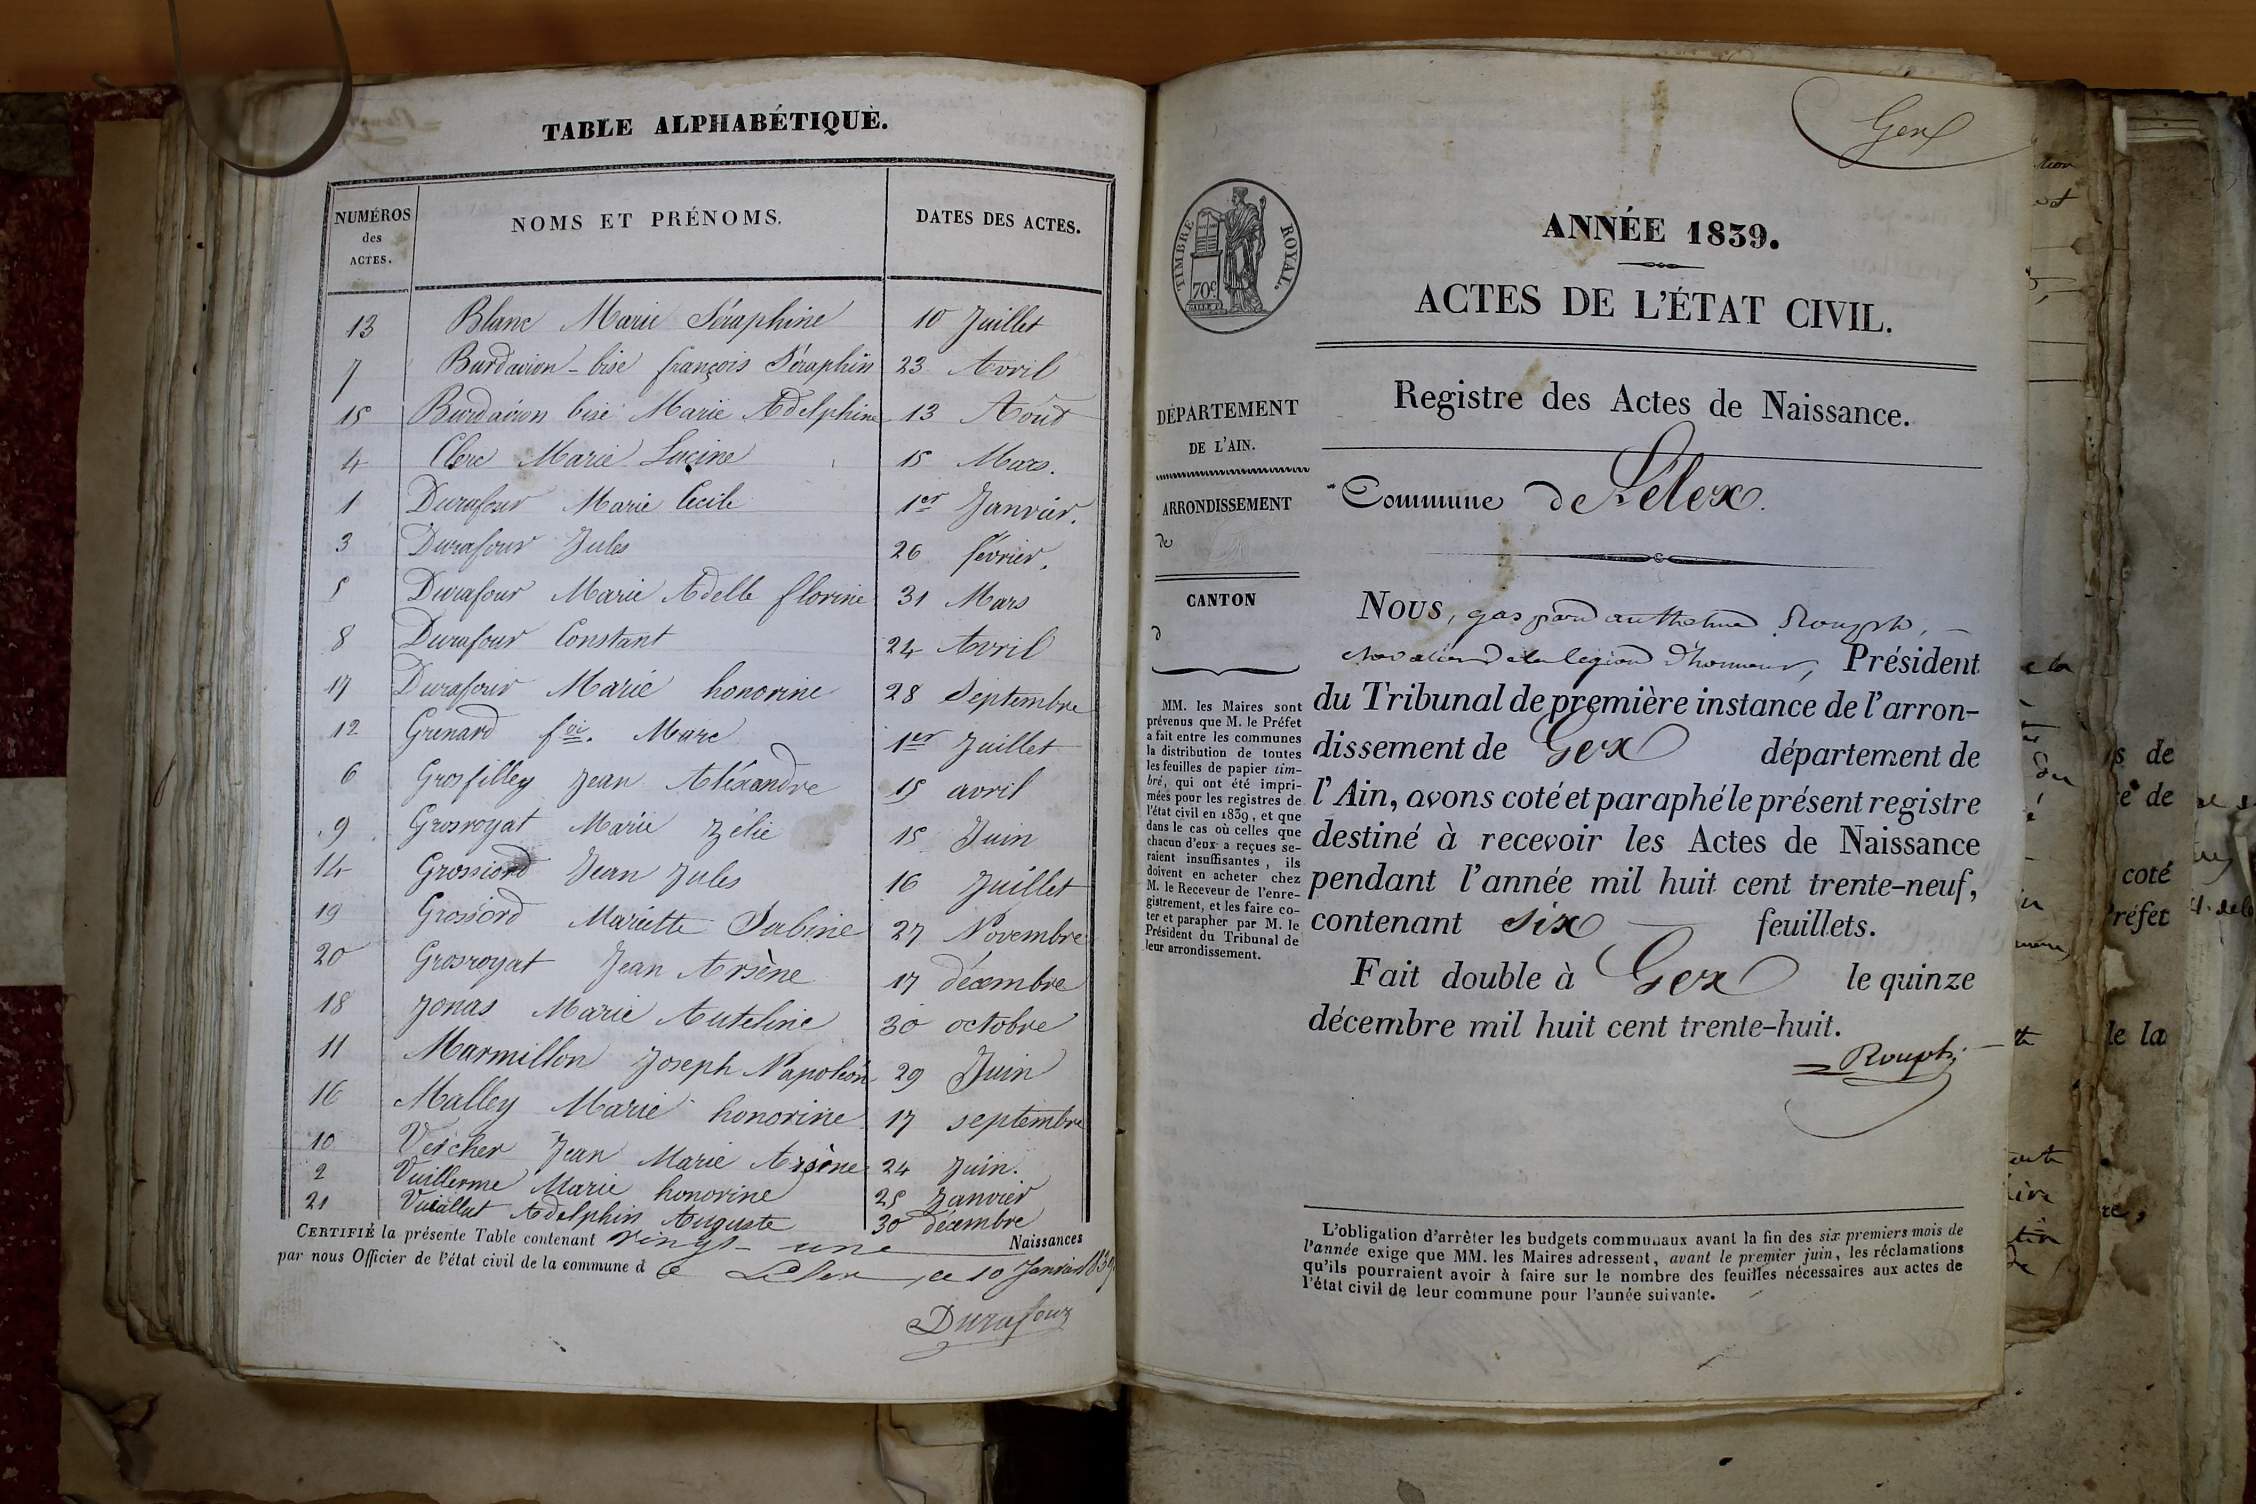 TABLE ALPHABÉTIQUE.
NUMÉROS des ACTES. NOMS ET PRÉNOMS. DATES DES ACTES.
13 Blanc Marie Séraphine 10 Juillet
7 Burdairon-bise françois Séraphin 23 Avril
15 Burdairon bise Marie Adelphine 13 Août
4 Clerc Marie Lucine 15 Mars.
1 Durafour Marie Cécile 1er Janvier.
3 Durafour Jules 26 février.
5 Durafour Marie Adelle florine 31 Mars
8 Durafour Constant 24 Avril
17 Durafour Marie honorine 28 Septembre
12 Grenard foi. Marc 1er Juillet
6 Grosfilley Jean Aléxandre 15 avril
9 Grosroyat Marie Zélie 15 Juin
14 Grossiord Jean Jules 16 Juillet
19 Grossiord Mariette Sabine 27 Novembre
20 Grosroyat Jean Arsène 17 décembre
18 Jonas Marie Auteline 30 octobre
11 Marmillon Joseph Napoléon 29 Juin
16 Malley Marie honorine 17 septembre
10 Vercher Jean Marie Arsène 24 Juin.
2 Vuillerme Marie honorine 25 Janvier
21 Vuaillat Adelphin Auguste 30 décembre
CERTIFIÉ la présente Table contenant vingt-une Naissances
par nous Officier de l'état civil de la commune de Lélex, ce 10 Janvier 1839
Durafour
Gex
TIMBRE ROYAL.
70c
ANNÉE 1839.
ACTES DE L'ÉTAT CIVIL.
DÉPARTEMENT
DE L'AIN.
ARRONDISSEMENT
de
CANTON
d
MM. les Maires sont
prévenus que M. le Préfet
a fait entre les communes
la distribution de toutes
les feuilles de papier tim-
bré, qui ont été impri-
mées pour les registres de
l'état civil en 1839, et que
dans le cas où celles que
chacun d'eux a reçues se-
raient insuffisantes, ils
doivent en acheter chez
M. le Receveur de l'enre-
gistrement, et les faire co-
ter et parapher par M. le
Président du Tribunal de
leur arrondissement.
Registre des Actes de Naissance.
Commune de Lélex.
Nous, gaspard anthelme Rouph,
chevalier de la légion d'honneur, Président
du Tribunal de première instance de l'arron-
dissement de Gex département de
l'Ain, avons coté et paraphé le présent registre
destiné à recevoir les Actes de Naissance
pendant l'année mil huit cent trente-neuf,
contenant six feuillets.
Fait double à Gex le quinze
décembre mil huit cent trente-huit.
Rouph
L'obligation d'arrêter les budgets communaux avant la fin des six premiers mois de
l'année exige que MM. les Maires adressent, avant le premier juin, les réclamations
qu'ils pourraient avoir à faire sur le nombre des feuilles nécessaires aux actes de
l'état civil de leur commune pour l'année suivante.
s de
e de
coté
Préfet
de la